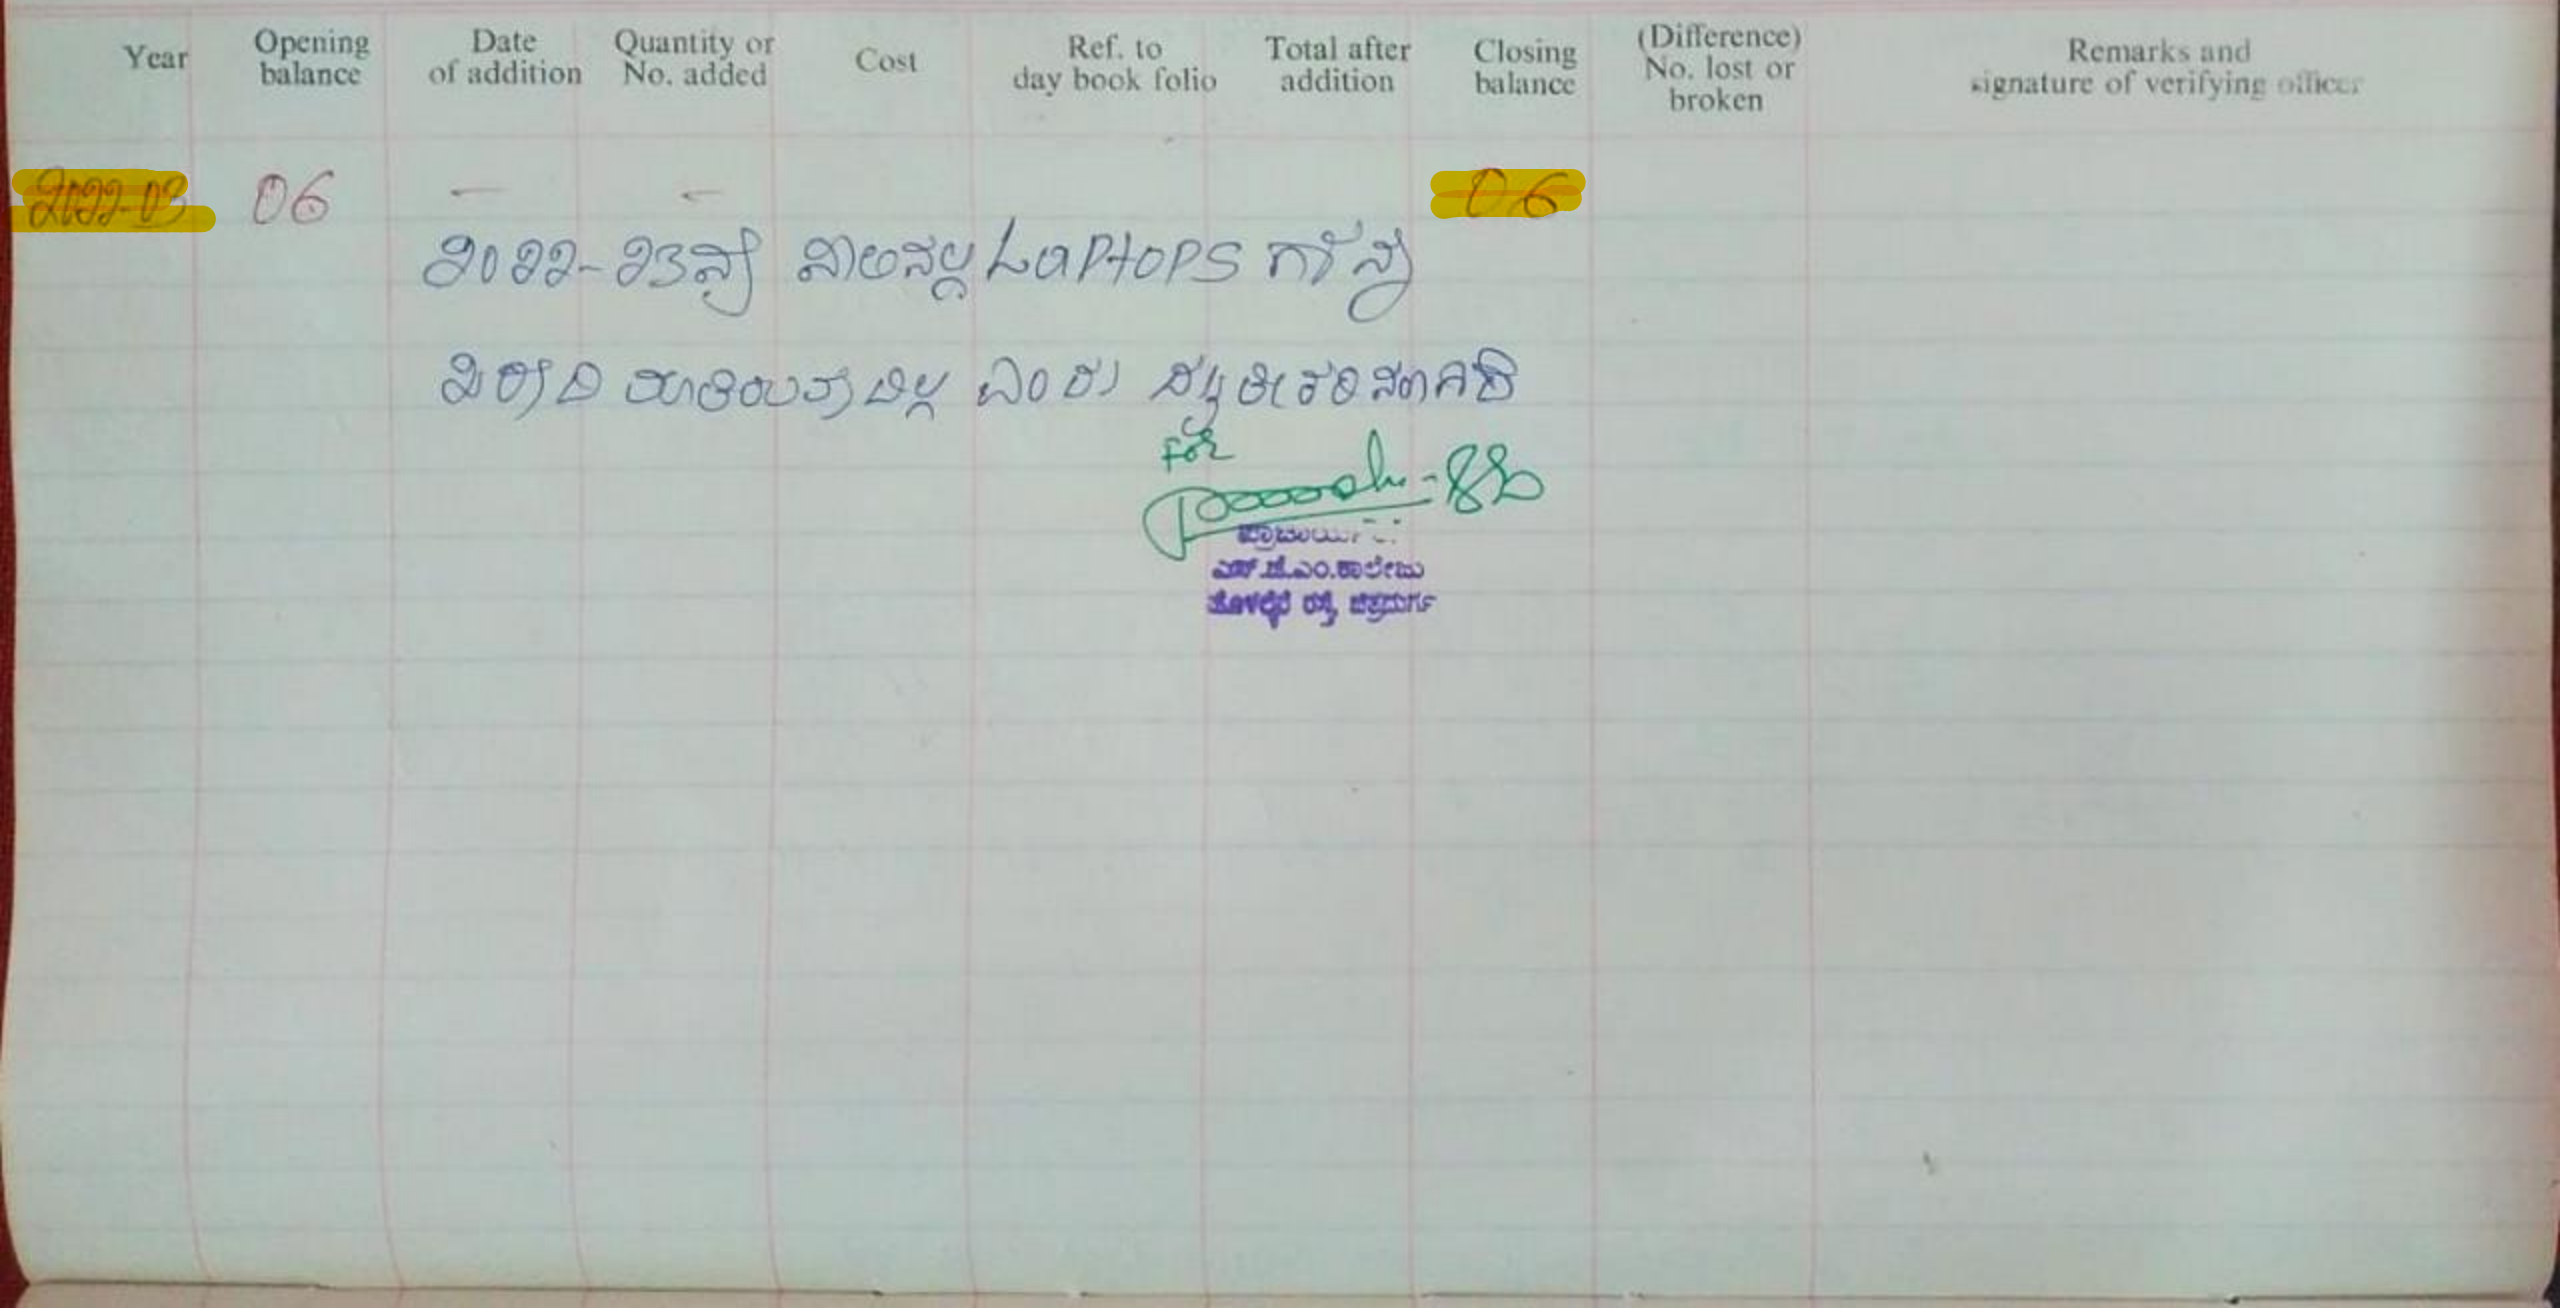 Year Opening balance Date of addition Quantity or No. added Cost Ref. to day book folio Total after addition Closing balance (Difference) No. lost or broken Remarks and signature of verifying officer
2022-03 06 — — 06
2022-23ನೇ ಸಾಲಿನಲ್ಲಿ LaPtoPS ಗಳನ್ನು
ಖರೀದಿ ಮಾಡಿರುವುದಿಲ್ಲ ಎಂದು ದೃಢೀಕರಿಸಲಾಗಿದೆ
for
ಪ್ರಾಚಾರ್ಯರು
ಎಸ್.ಜೆ.ಎಂ.ಕಾಲೇಜು
ಹೊಳಲ್ಕೆರೆ ರಸ್ತೆ, ಚಿತ್ರದುರ್ಗ